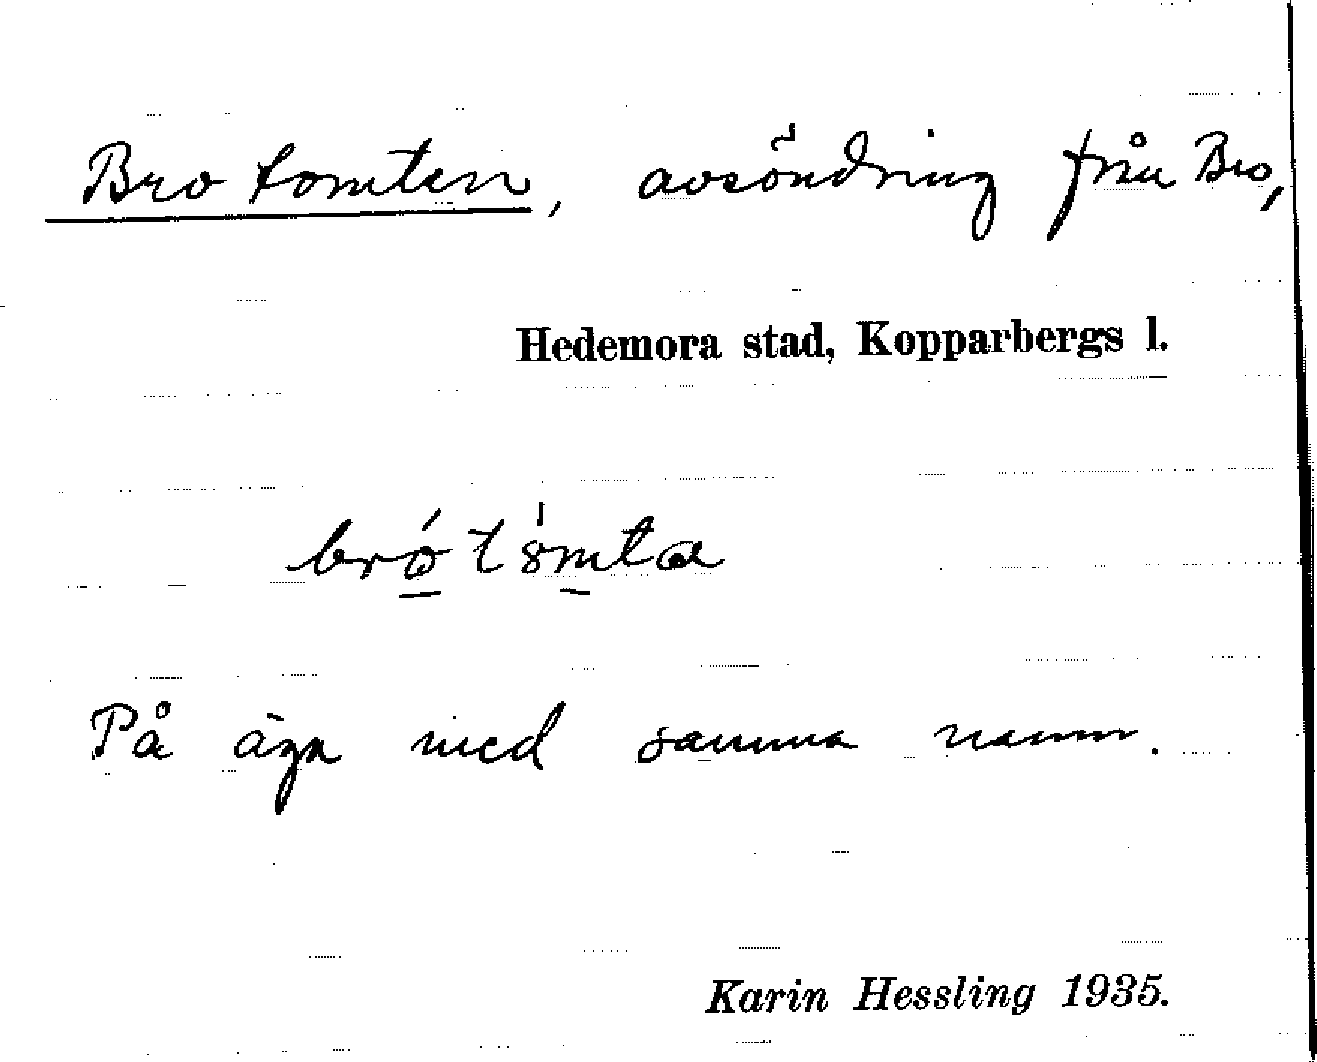 Brotomten, avsöndring från Bro,
Hedemora stad, Kopparbergs l.
På ägn med samma namn.
Karin Hessling 1935.